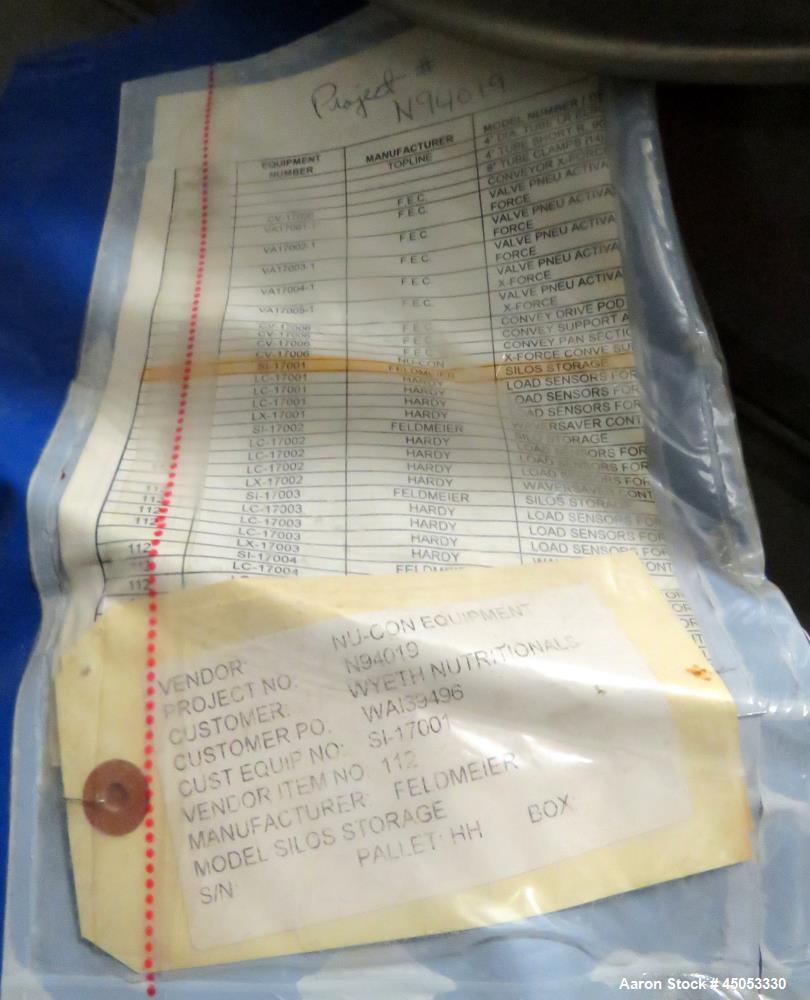 Project #
N94019
EQUIPMENT NUMBER MANUFACTURER MODEL NUMBER /
TOPLINE 4" DIA. TUBE LR
4" TUBE SHORT R.
TUBE CLAMPS (14)
CONVEYOR X-FORCE
CV-17006 F.E.C. VALVE PNEU ACTIVA
VA17001-1 F.E.C. FORCE
VALVE PNEU ACTIVA
VA17002-1 F.E.C. FORCE
VALVE PNEU ACTIVA
VA17003-1 F.E.C. FORCE
VALVE PNEU ACTIVA
VA17004-1 F.E.C. X-FORCE
VALVE PNEU ACTIVA
VA17005-1 F.E.C. X-FORCE
CV-17006 F.E.C. CONVEY DRIVE POD
CV-17006 F.E.C. CONVEY SUPPORT A
CV-17006 F.E.C. CONVEY PAN SECTIO
CV-17006 NU-CON X-FORCE CONVE SU
SI-17001 FELDMEIER SILOS STORAGE
LC-17001 HARDY LOAD SENSORS FOR
LC-17001 HARDY OAD SENSORS FOR
LC-17001 HARDY AD SENSORS FOR
LX-17001 HARDY WAVERSAVER CONT
SI-17002 FELDMEIER STORAGE
LC-17002 HARDY SENSORS FOR
LC-17002 HARDY LOAD SENSORS FOR
LC-17002 HARDY LOAD FOR
LX-17002 HARDY WAVERSAVER CONT
SI-17003 FELDMEIER SILOS STORAGE
LC-17003 HARDY LOAD SENSORS FO
112 LC-17003 HARDY LOAD SENSORS FOR
112 LC-17003 HARDY LOAD SENSORS FOR
LX-17003 HARDY ONT
112 SI-17004 FELDMEIER
LC-17004
112
VENDOR: NU-CON EQUIPMENT
PROJECT NO: N94019
CUSTOMER: WYETH NUTRITIONALS
CUSTOMER PO. WAI39496
CUST EQUIP NO: SI-17001
VENDOR ITEM NO: 112
MANUFACTURER: FELDMEIER
MODEL SILOS STORAGE
S/N: PALLET: HH BOX:
Aaron Stock # 45053330